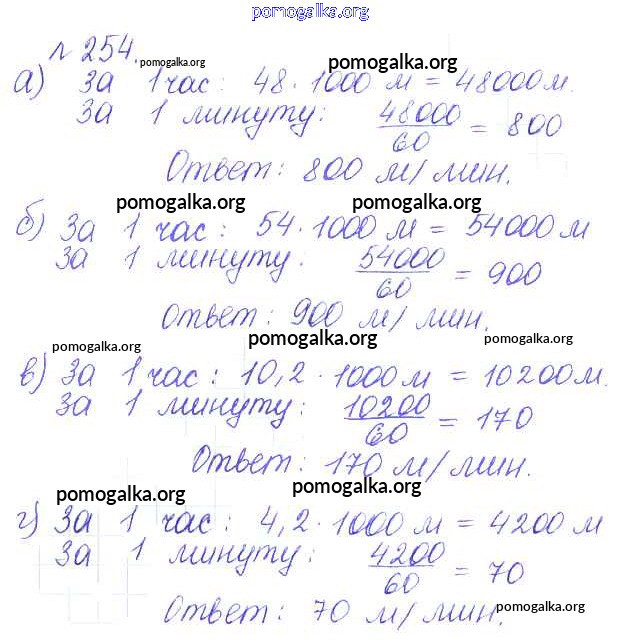 pomogalka.org
№ 254. pomogalka.org pomogalka.org
а) За 1 час: 48 · 1000 м = 48000 м.
За 1 минуту: 48000/60 = 800
pomogalka.org pomogalka.org
Ответ: 800 м/мин.
pomogalka.org pomogalka.org
б) За 1 час: 54 · 1000 м = 54000 м
За 1 минуту: 54000/60 = 900
Ответ: 900 м/мин.
pomogalka.org pomogalka.org pomogalka.org
в) За 1 час: 10,2 · 1000 м = 10200 м.
За 1 минуту: 10200/60 = 170
Ответ: 170 м/мин.
pomogalka.org pomogalka.org
г) За 1 час: 4,2 · 1000 м = 4200 м
За 1 минуту: 4200/60 = 70
Ответ: 70 м/мин. pomogalka.org